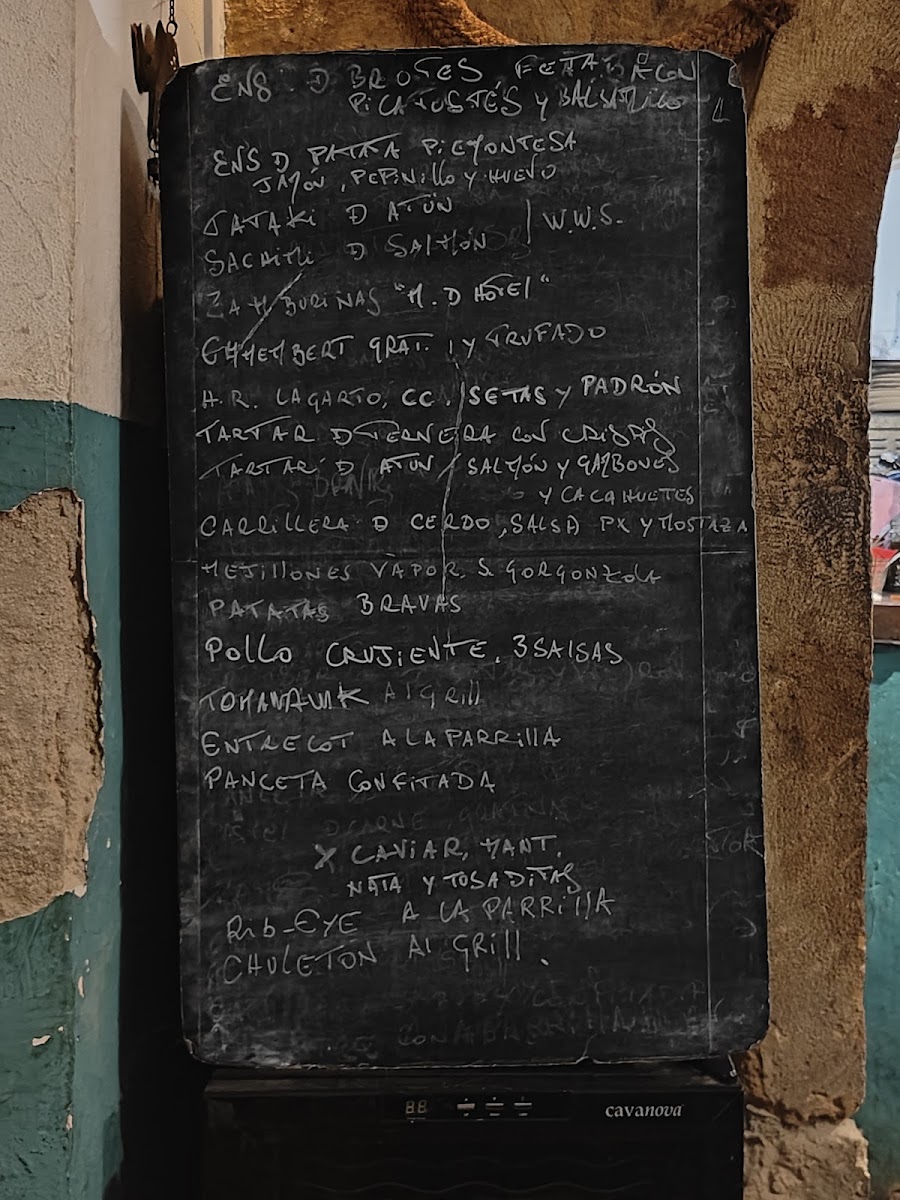 ENS. D BROTES, FETA, BACON
PICATOSTÉS Y BALSAMICO
ENS D PATATA PIEMONTESA
JAMÓN, PEPINILLO Y HUEVO
TATAKI D ATÚN
W.W.S.
SACHIMI D SALMÓN
ZAMBURIÑAS "M. D HOTEL"
CAMEMBERT GRAT. Y TRUFADO
H.R. LAGARTO, CC. SETAS Y PADRÓN
TARTAR D TERNERA CON
TARTAR D ATUN / SALMÓN Y GAMBONES
Y CACAHUETES
CARRILLERA D CERDO, SALSA PX Y MOSTAZA
MEJILLONES VAPOR, S. GORGONZOLA
PATATAS BRAVAS
POLLO CRUJIENTE, 3 SALSAS
TOMAHAWK Al GRill
ENTRECOT A LA PARRillA
PANCETA CONFITADA
X CAVIAR, MANT,
NATA Y TOSADITAS
Rib-EYE A LA PARRillA
CHULETON Al GRill.
88
cavanova